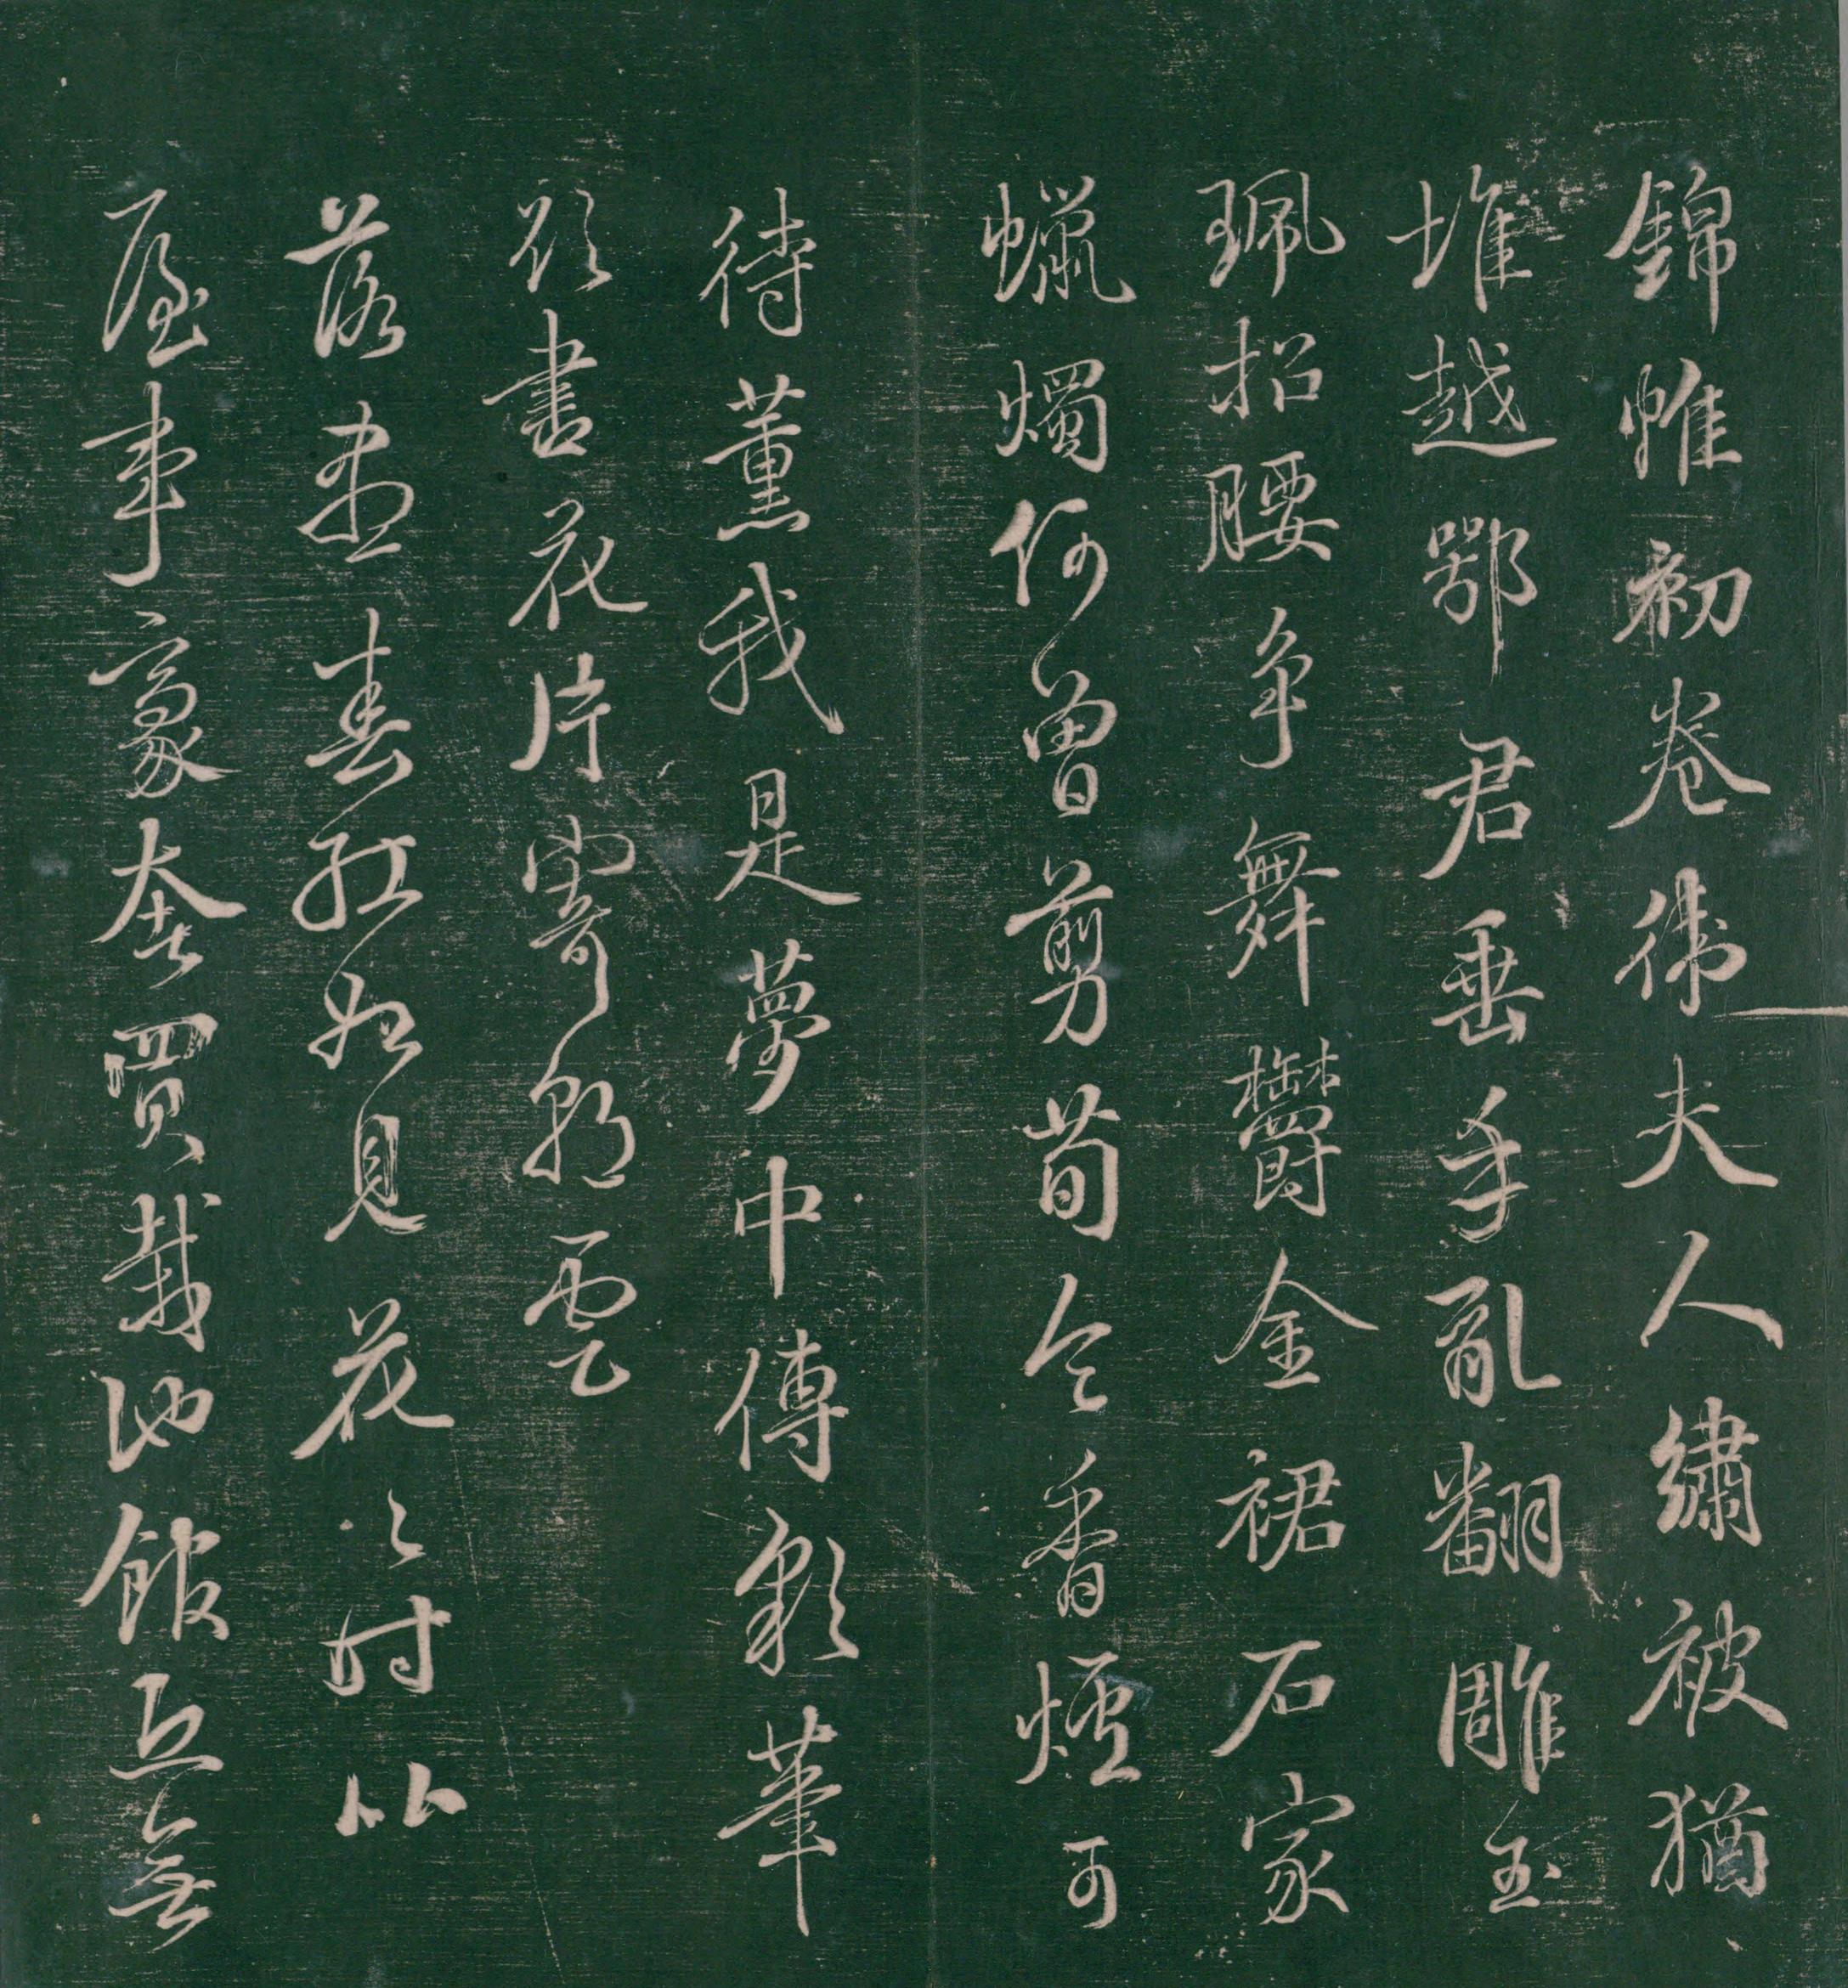 錦帷初卷衛夫人繡被猶
堆越鄂君垂手亂翻雕玉
珮招腰爭舞鬱金裙石家
蠟燭何曾剪荀令香煙可
待薰我是夢中傳彩筆
欲書花片寄朝雲
落盡春紅始見花々時比
屋事豪奢買栽池館恐無